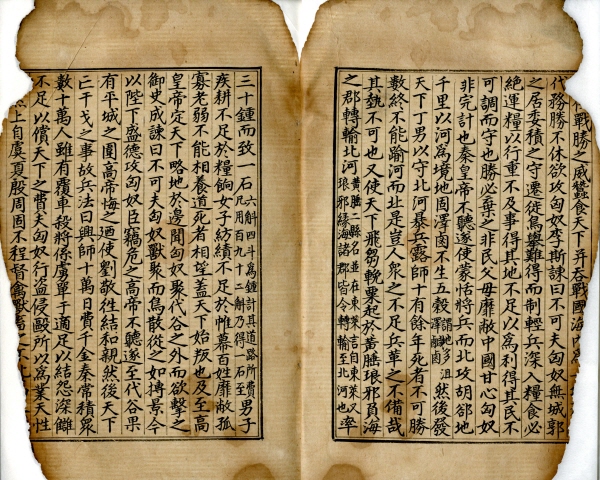 戰勝之威蠶食天下并吞戰國海
代務勝不休欲攻匈奴李斯諫曰不可夫匈奴無城郭
之居委積之守遷徙鳥舉難得而制輕兵深入糧食必
絶運糧以行重不及事得其地不足以爲利得其民不
可調而守也勝必棄之非民父母靡敝中國甘心匈奴
非完計也秦皇帝不聽遂使蒙恬將兵而北攻胡郤地
千里以河爲境地固澤鹵不生五穀謂地多沮澤鹹鹵然後發
天下丁男以守北河暴兵露師十有餘年死者不可勝
數終不能踰河而北是豈人衆之不足兵革之不備哉
其埶不可也又使天下飛芻輓粟起於黃腄琅邪負海
之郡轉輸北河黃腄二縣名並在東萊言自東萊又琅邪緣海諸郡皆令轉輸至北河也率
三十鍾而致一石六斛四斗爲鍾計其道路所費凡用百九十二斛乃得一石至男子
疾耕不足於糧餉女子紡績不足於帷幕百姓靡敝孤
寡老弱不能相養道死者相望蓋天下始叛也及至高
皇帝定天下略地於邊聞匈奴聚代谷之外而欲擊之
御史成諫曰不可夫匈奴獸聚而鳥散從之如搏景今
以陛下盛德攻匈奴臣竊危之高帝不聽遂至代谷果
有平城之圍高帝悔之迺使劉敬徃結和親然後天下
亡干戈之事故兵法曰興師十萬日費千金秦常積衆
數十萬人雖有覆軍殺將係虜單于適足以結怨深讎
不足以償天下之費夫匈奴行盜侵敺所以爲業天性
然上自虞夏殷周固不程督禽獸畜之不